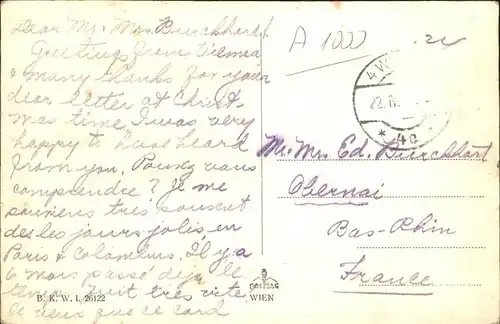 Dear Mr & Mrs. Burckhardt
Greetings from Vienna
& many thanks for your
dear letter at Christ-
mas time. I was very
happy to have heard
from you. Pouvez vous
comprendre? Je me
souviens très souvent
des les jours jolis, en
Paris & Colombus. Il y a
6 mois passé déjà le
temps suit très vite
Je veux que ce card
A 1000
22. IV.
* 4c
Mr. Mrs. Ed. Burckhart
Obernai
Bas-Rhin
France
B. K. W. I. 26122
WIEN